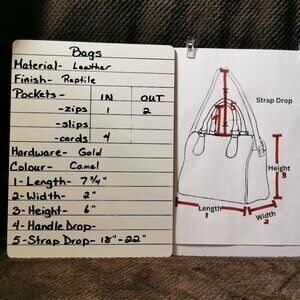 Bags
Material- Leather
Finish- Reptile
Pockets- IN OUT
-zips 1 2
-slips
-cards 4
Hardware- Gold
Colour- Camel
1-Length- 7 3/4"
2-Width- 2"
3-Height- 6"
4-Handle Drop-
5-Strap Drop- 18"-22"
Strap Drop
Height
3
Length
1
Width
2